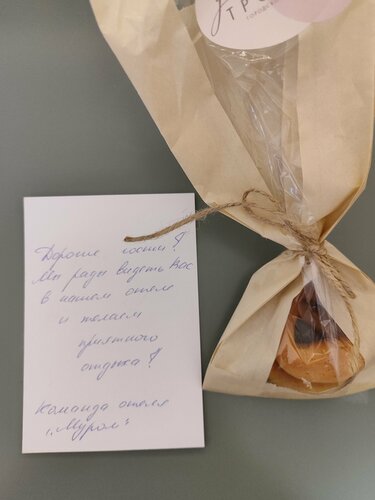 Дорогие гости!
Мы рады видеть Вас
в нашем отеле
и желаем
приятного
отдыха!
Команда отеля
"Муром"